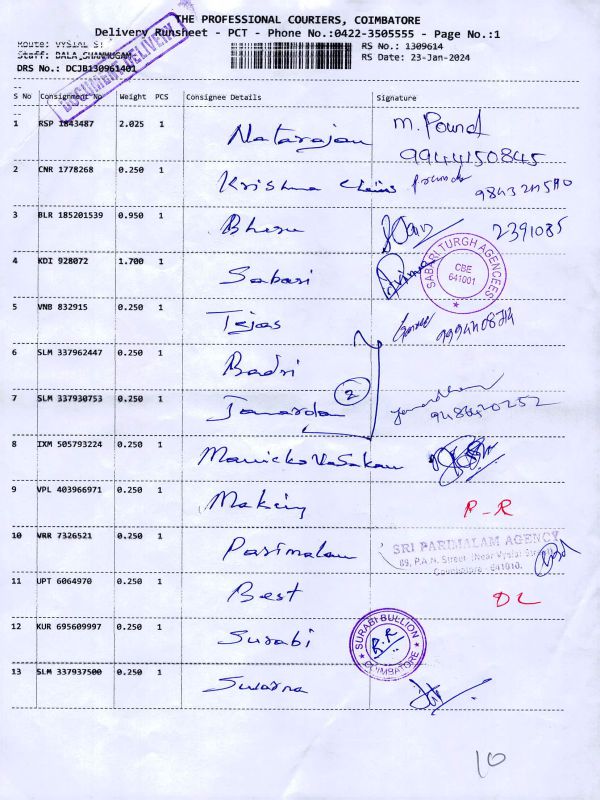 THE PROFESSIONAL COURIERS, COIMBATORE
Delivery Runsheet - PCT - Phone No.:0422-3505555 - Page No.:1
Route: VYSIAL S:
Staff: BALA SHANMUGAM
DRS No.: DCJB130961401
RS No.: 1309614
RS Date: 23-Jan-2024
DOCUMENT DELIVERY
S No Consignment No Weight PCS Consignee Details Signature
1 RSP 1843487 2.025 1 Natarajan M. Pound
9944150845
2 CNR 1778268 0.250 1 Krishna Chains
3 BLR 185201539 0.950 1 2391085
4 KDI 928072 1.700 1 Sabari
SABARI TURGH AGENCEES
CBE
641001
5 VNB 832915 0.250 1 Tejas
6 SLM 337962447 0.250 1 Badri
2
7 SLM 337930753 0.250 1 Janardan
9486420252
8 IXM 505793224 0.250 1
9 VPL 403966971 0.250 1 R-R
10 VRR 7326521 0.250 1 Parimalam
SRI PARIMALAM AGENCY
89, P.A.N. Street, (Near Vysial Street)
Coimbatore - 641010.
11 UPT 6064970 0.250 1 Best DL
12 KUR 695609997 0.250 1 Surabi
SURABI BULLION
R.R
COIMBATORE
13 SLM 337937500 0.250 1 Swarna
10